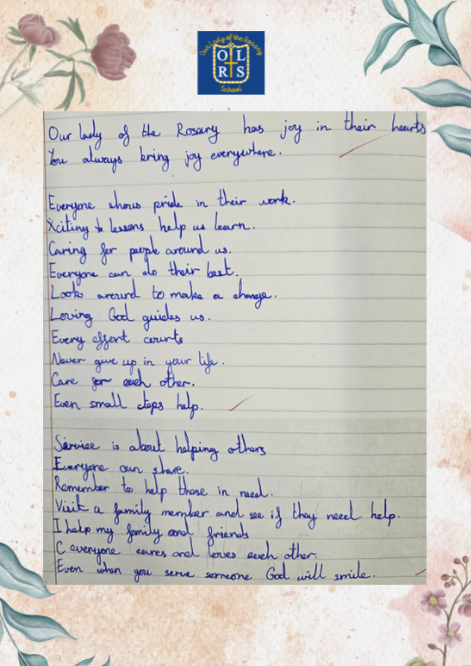 Our Lady of the Rosary
O L
R S
School
Our lady of the Rosary has joy in their hearts
You always bring joy everywhere.
Everyone shows pride in their work.
Xciting lessons help us learn.
Caring for people around us.
Everyone can do their best.
Looks around to make a change.
Loving God guides us.
Every effort counts
Never give up in your life.
Care for each other.
Even small steps help.
Service is about helping others
Everyone can share.
Remember to help those in need.
Visit a family member and see if they need help.
I help my family and friends
C everyone cares and loves each other.
Even when you serve someone God will smile.